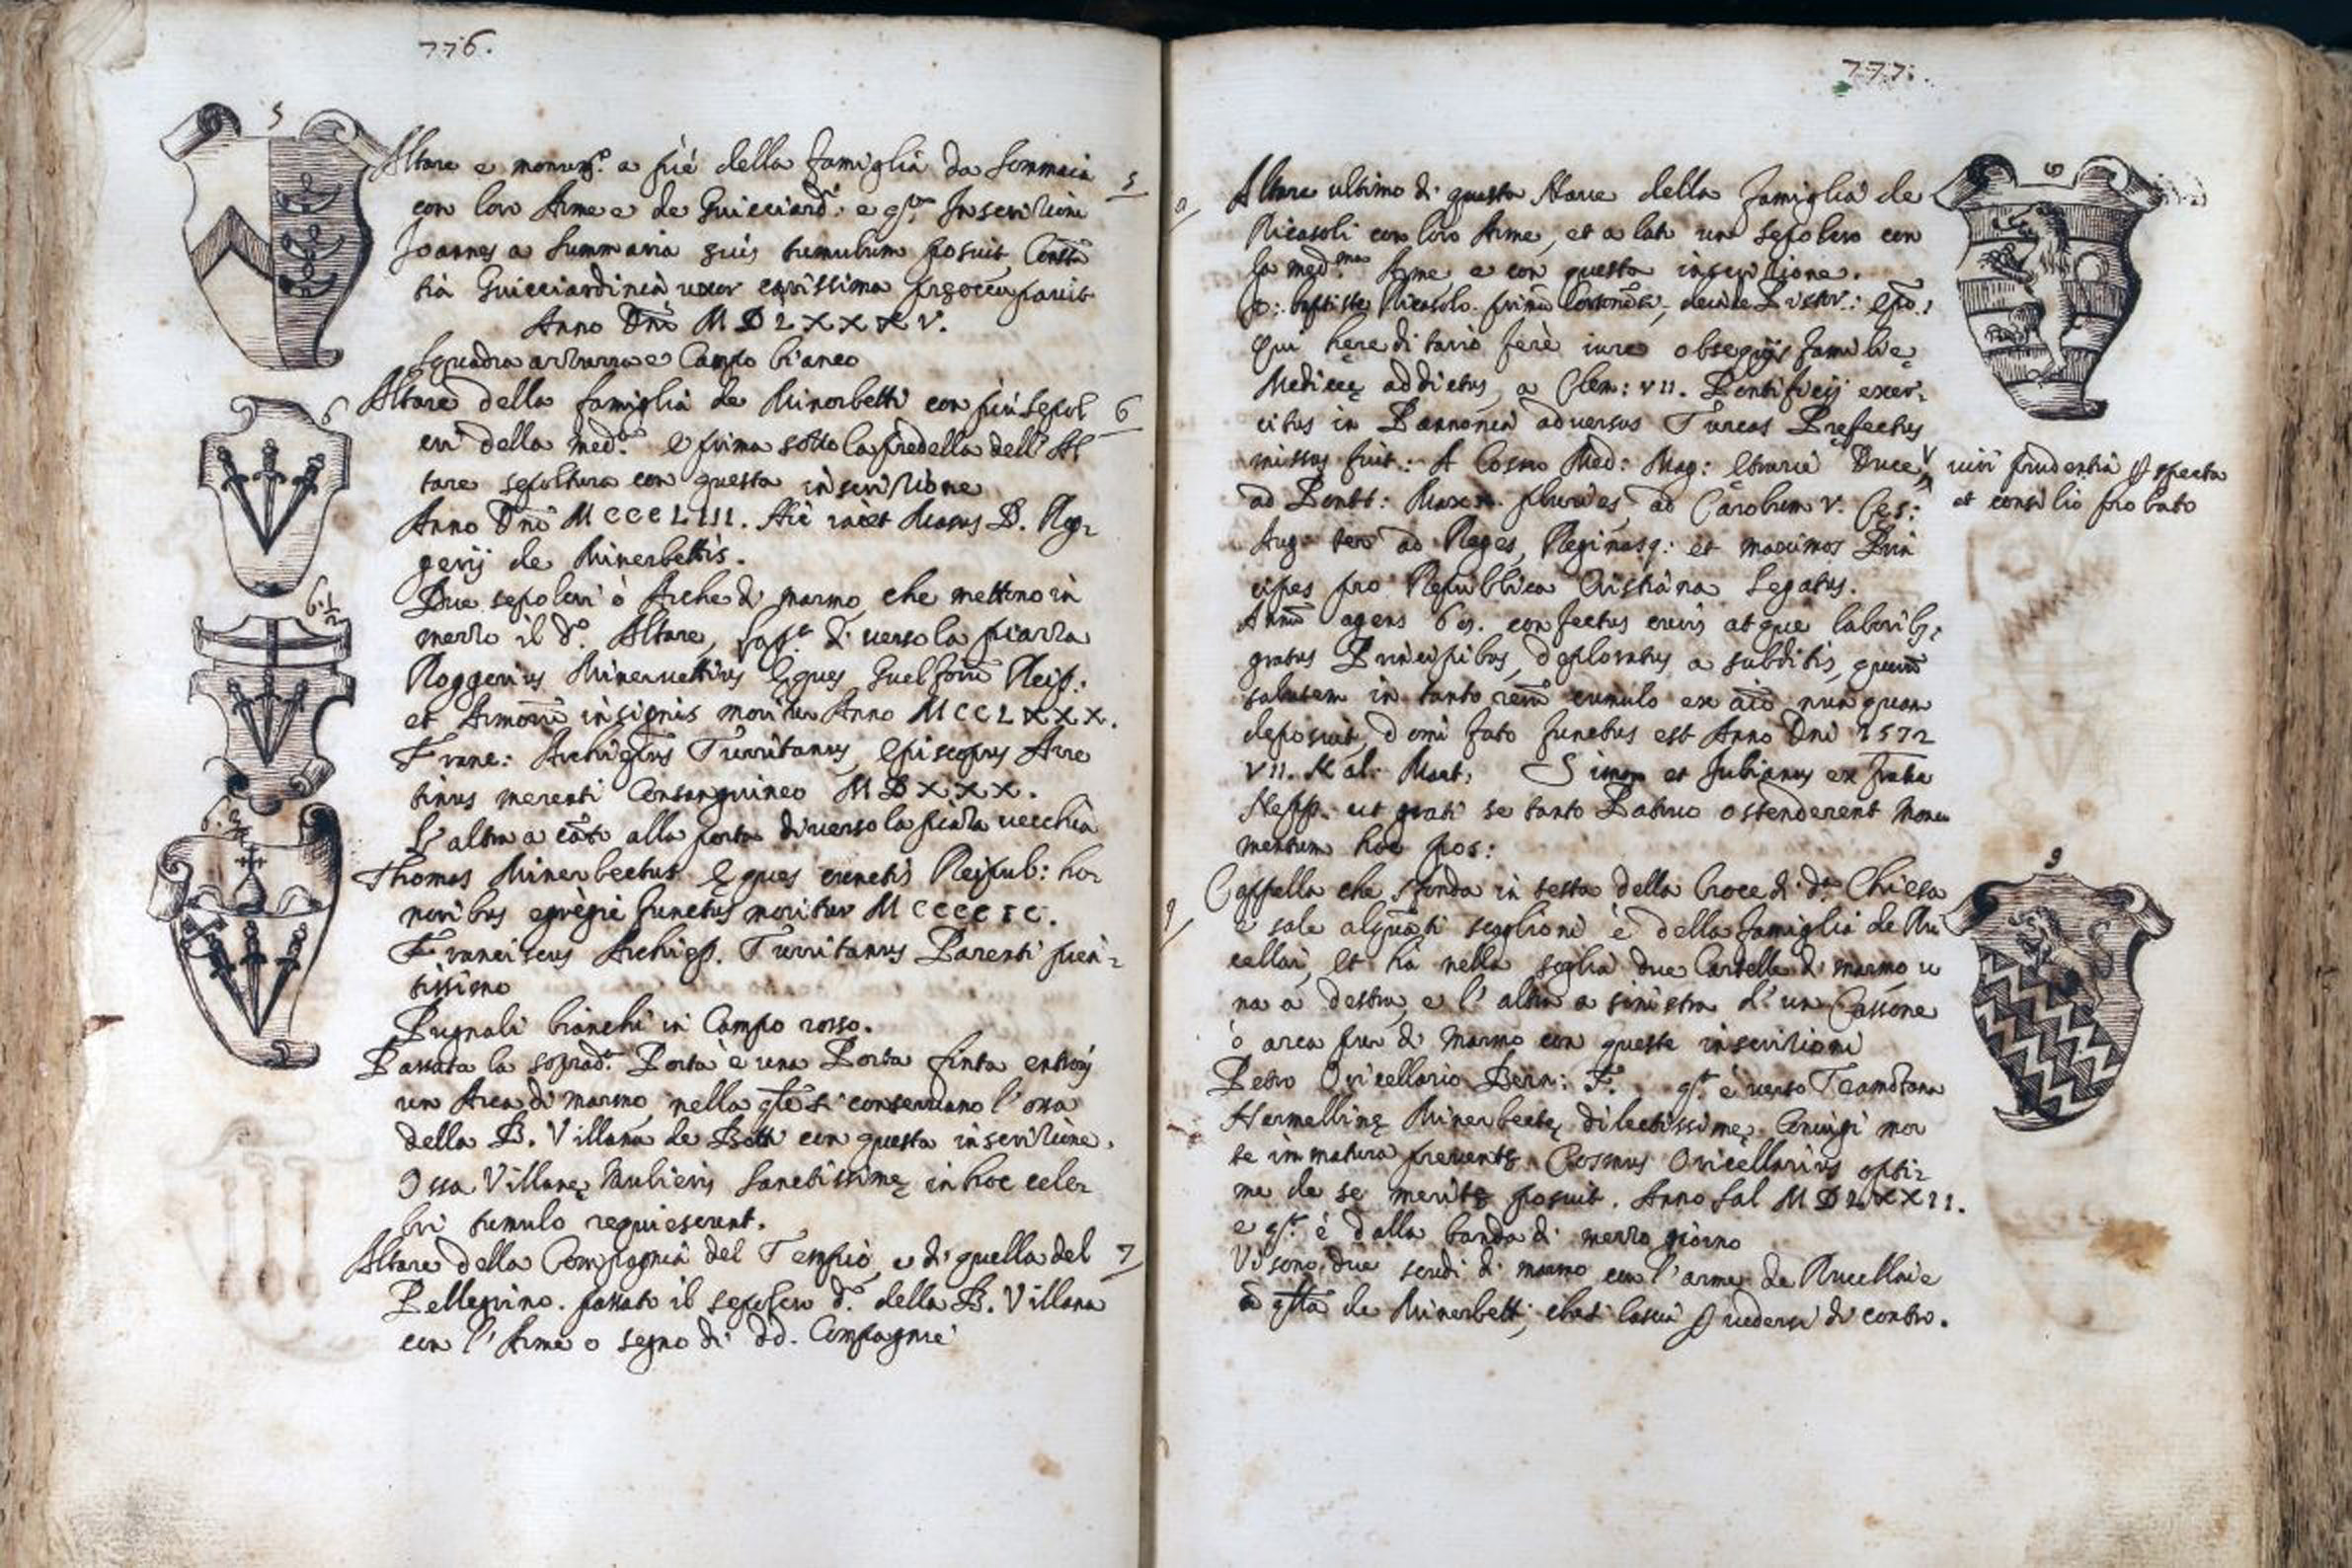 776.
5
Altare e monumto. a piè della famiglia da Sommaia 5
con loro Arme e de Guicciardi: e qta. Inscrizione
Joannes a Summaria suis tumulum posuit Constã
tia Guicciardinia uxor carissima preoccupavit
Anno Dnĩ MDLXXXV.
Squadra azzurra e Campo bianco
6
Altare della famiglia de Minerbetti con più sepol 6
cri della meda. e prima sotto la predella dell'Al
tare sepoltura con questa inscrizione
Anno Dnĩ MCCCLIII. Hic iacet Masus D. Rug-
gerij de Minerbettis.
Due sepolcri ò Arche di marmo che mettono in
6.1/2
mezzo il do. Altare, di verso la piazza
Roggerius Minervettius Eques Reip:
et insignis moritur Anno MCCLXXX.
Franc: Turritanus, Episcopus Arre
tinus merenti Consanguineo MDXXX.
6.3/4
L'altra a cãto alla porta di verso la piaza vecchia
Thomas Minerbectus Eques cunctis Reipub: ho-
noribus egregie functus moritur MCCCCIC.
Franciscus Archiepp. Turritanus Parenti pien-
tissimo
Pugnali bianchi in Campo rosso.
Passata la soprada. Porta è una Porta finta
un Arca di marmo nella qle si conservano l'ossa
della B. Villana de Botti con questa inscrizione.
Ossa Villanę Mulieris Sanctissimę in hoc cele-
bri tumulo requiescunt.
Altare della Compagnia del Tempio, e di quella del 7
Pellegrino. passato il sepolcro do. della B. Villana
con l'Arme o segno di dd. Compagnie
777.
Altare ultimo di questa Nave della famiglia de
Ricasoli con loro Arme, et a lato un sepolcro con
la medma. Arme e con questa inscrizione.
Jo: baptiste Ricasolo. primũ deinde Pistor: Epõ:
Qui hereditario fere iure obsequijs familię
Medicę addictus, a Clem: VII. Pontificij exer-
citus in Pannonia adversus Turcas Prefectus
missus fuit: A Cosmo Med: Mag: Etrurię Duce, viri prudentia perspecta
ad Pontt: Max. pluries, ad Carolum V. Ces: et consilio probato
Aug: ter ad Reges, Reginasq: et maximos Prin
cipes pro Republica Cristiana Legatus.
Annũ agens confectus curis atque laborib;
gratus Principibus, deploratus a subditis, quum
salutem in tanto rerũ cumulo ex aĩo nunquam
deposuit, domi fato functus est Anno Dni 1572
VII. Kal: Mart: Simon et Julianus ex fratre
Nepp. ut grati se tanto Patruo ostenderent monu
mentum hoc pos:
9
Cappella che sfonda in testa della Croce di da. Chiesa
e sale alquãti scaglioni è della famiglia de Ru
cellai, et hà nella soglia due Cartelle di marmo u
na a destra, e l'altra a sinistra d'un Cassone
ò arca pur di marmo con queste inscrizioni
Petro Oricellario Bern: F. qta. è verso Tramõtana
Hermellinę Minerbectę dilectissimę Coniugi mor
te immatura Cosmus Oricellarius opti-
me de se posuit. Anno Sal MDLXXII.
e qta. è dalla banda di mezzo giorno
Vi sono due scudi di marmo con l'arme de Rucellai e
de Minerbetti, vedersi di contro.